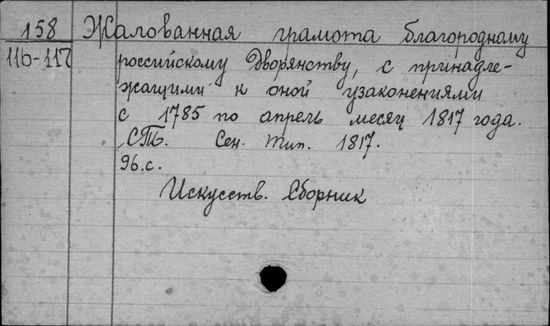 158 Жалованная грамота благородному
116-117 российскому Дворянству, с принадле-
жащими к оной узаконениями
с 1785 по апрель месяц 1817 года.
СПб. Сен. Тип. 1817.
96.с.
Искусств. Сборник